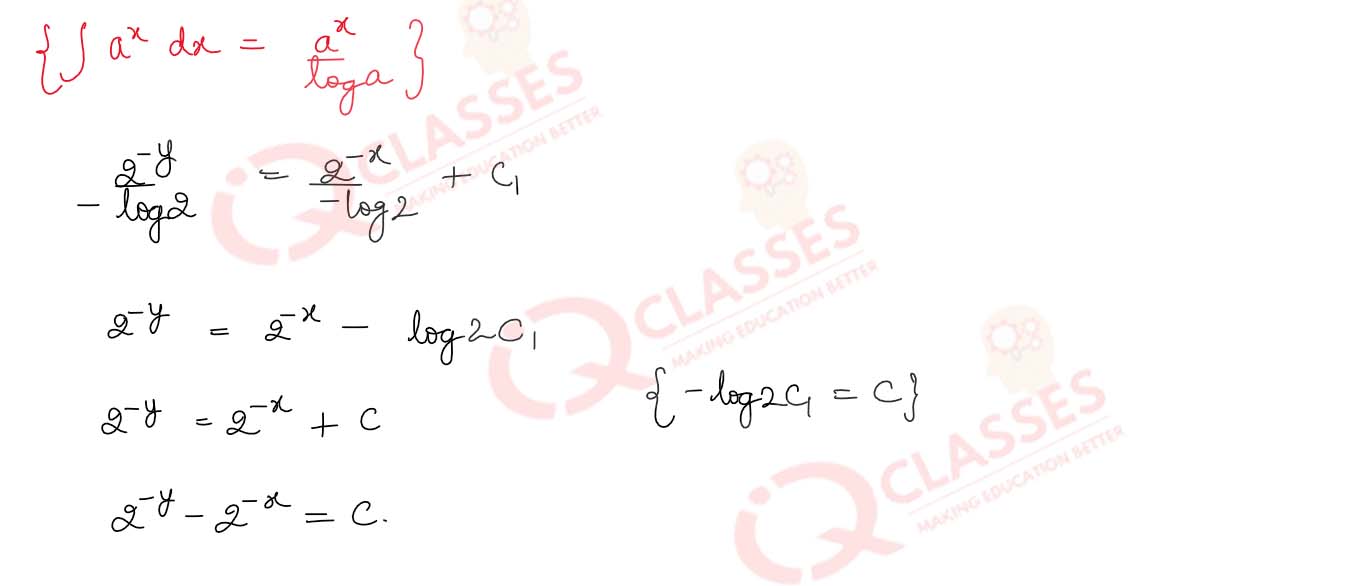 {∫ aˣ dx = aˣ / log a}
2^-y / -log2 = 2^-x / -log2 + C₁
2^-y = 2^-x - log2C₁
{-log2C₁ = C}
2^-y = 2^-x + C
2^-y - 2^-x = C.
IQ CLASSES
MAKING EDUCATION BETTER
IQ CLASSES
MAKING EDUCATION BETTER
IQ CLASSES
MAKING EDUCATION BETTER